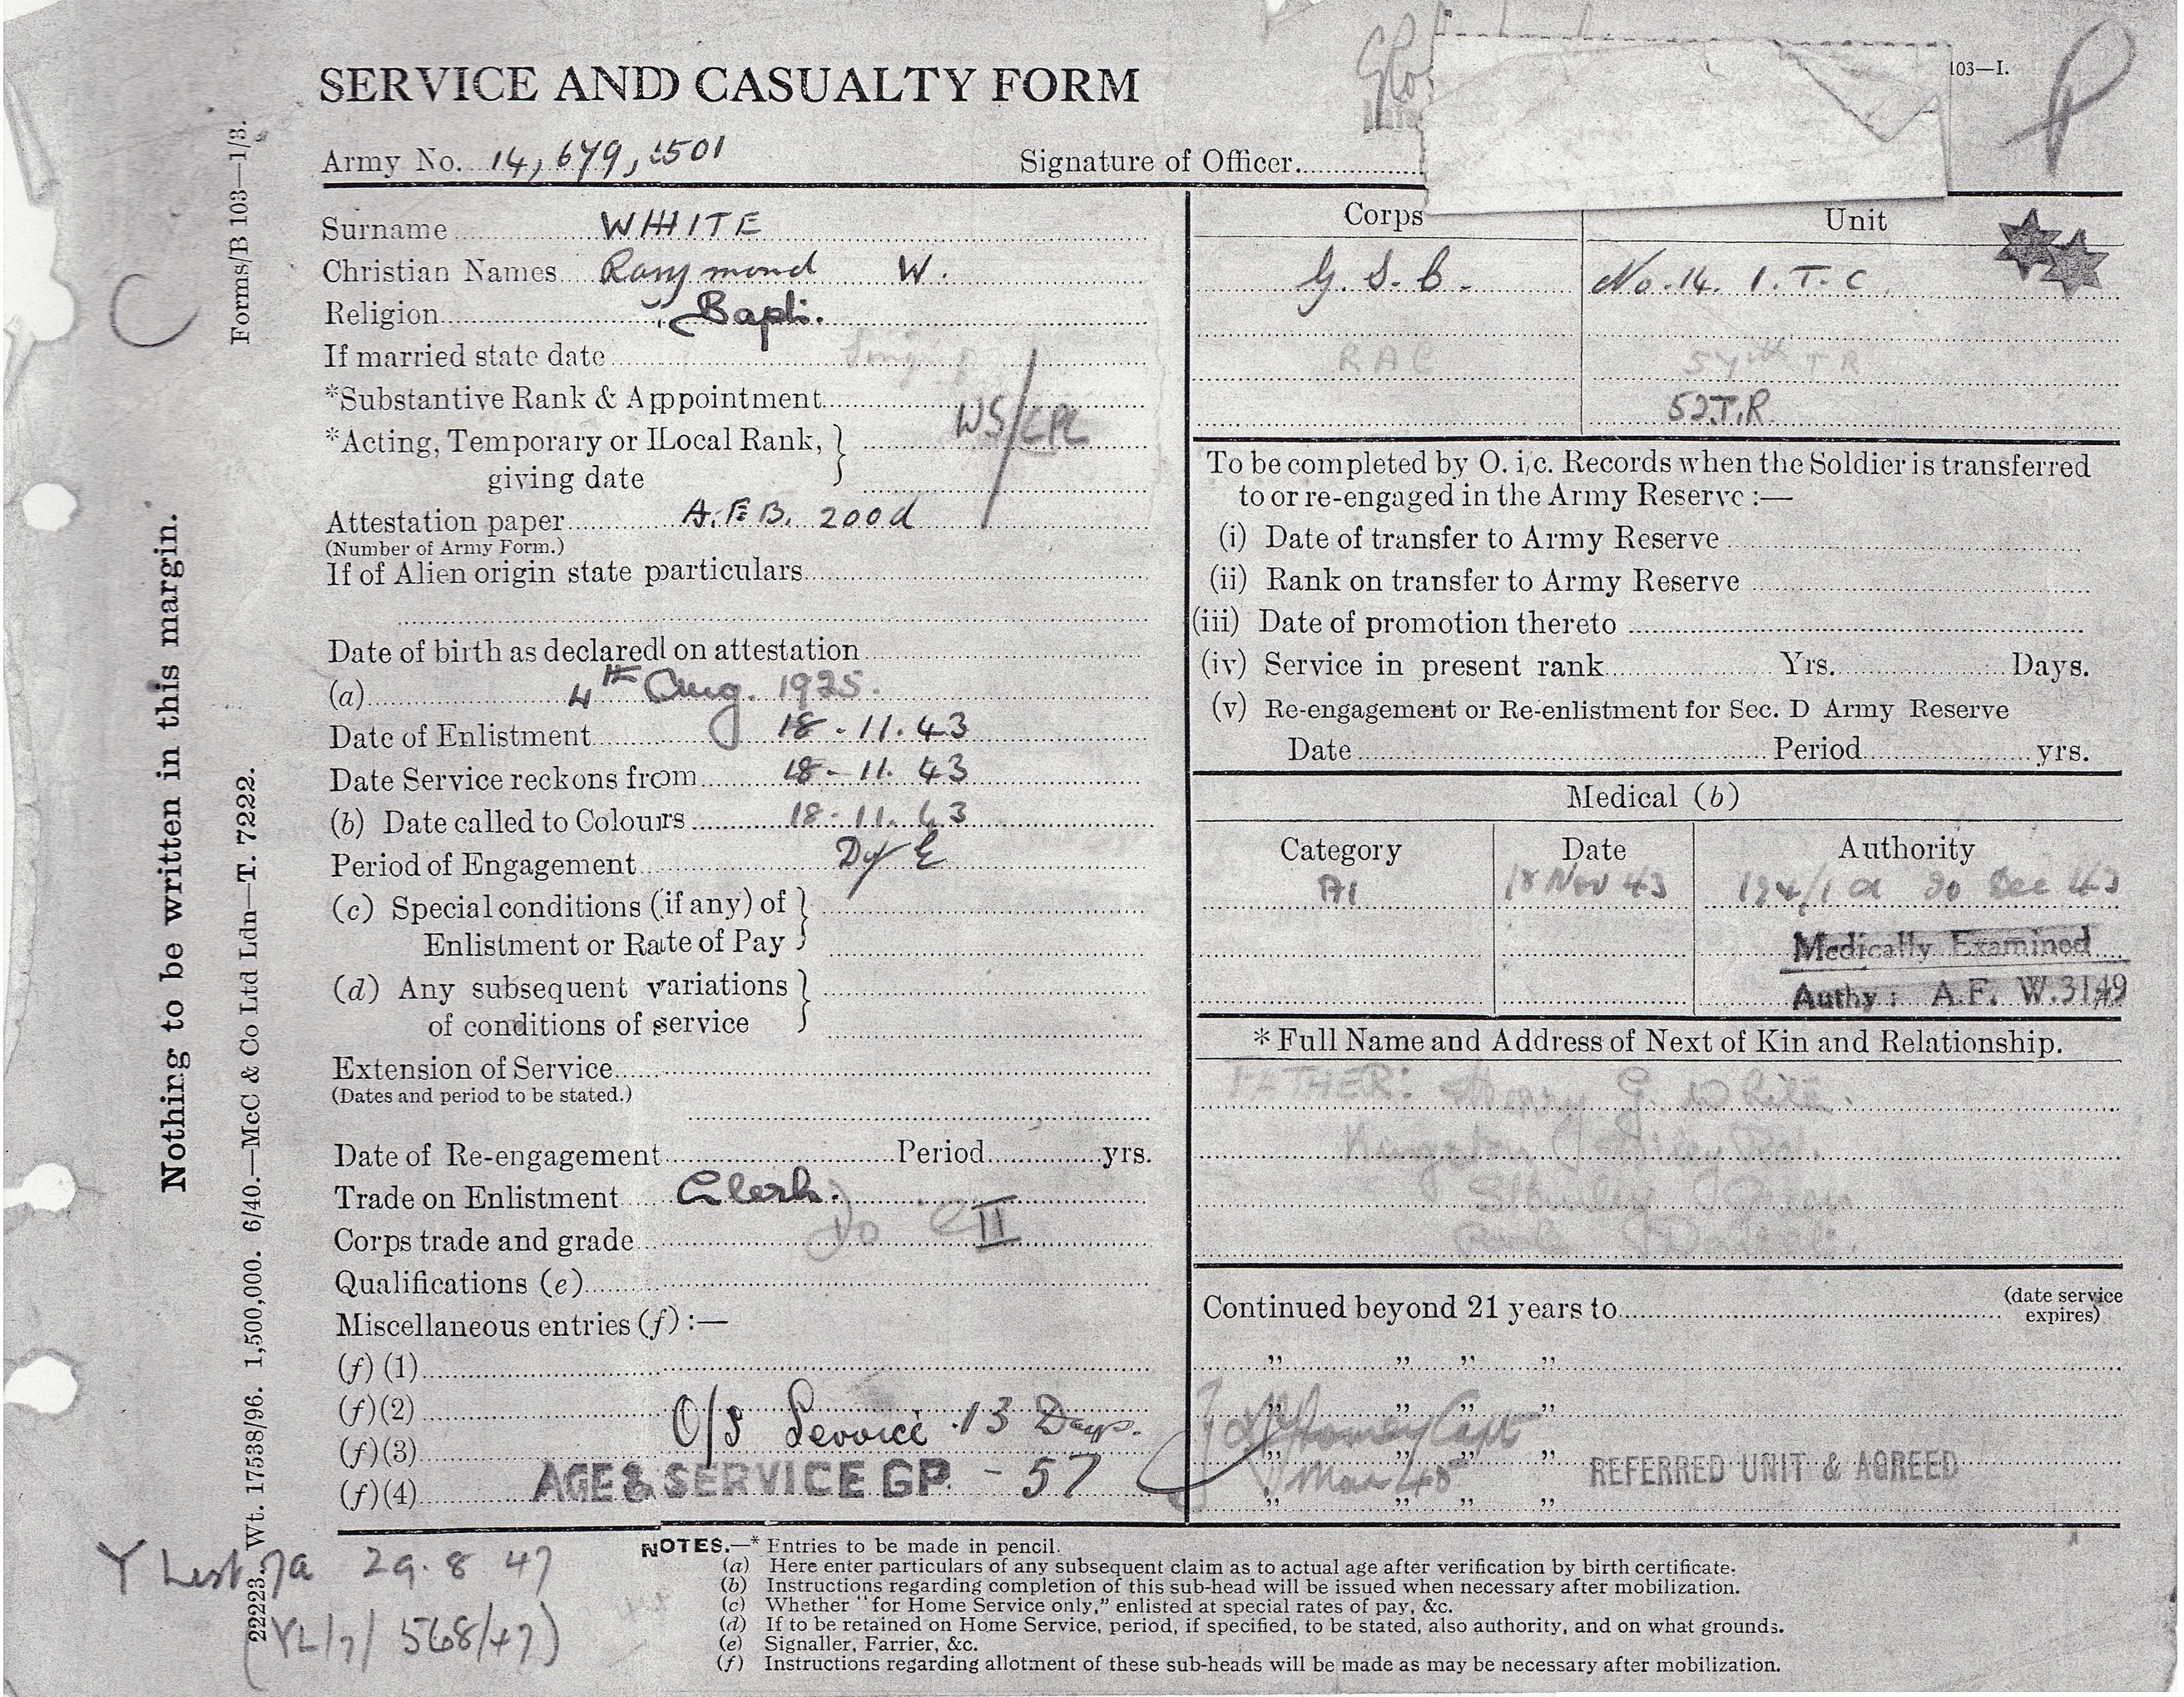 SERVICE AND CASUALTY FORM
103—I.
Army No. 14,679,501
Signature of Officer
Surname WHITE
Christian Names Raymond W.
Religion Bapt.
If married state date Single
*Substantive Rank & Appointment
WS/CPL
*Acting, Temporary or Local Rank, giving date
Attestation paper A.F.B. 200d
(Number of Army Form.)
If of Alien origin state particulars
Date of birth as declared on attestation
(a) 4th Aug. 1925.
Date of Enlistment 18-11.43
Date Service reckons from 18-11.43
(b) Date called to Colours 18-11.43
Period of Engagement D of E
(c) Special conditions (if any) of
Enlistment or Rate of Pay
(d) Any subsequent variations
of conditions of service
Extension of Service
(Dates and period to be stated.)
Date of Re-engagement Period yrs.
Trade on Enlistment Clerk.
Corps trade and grade II
Qualifications (e)
Miscellaneous entries (f) :—
(f) (1)
(f) (2)
O/S Service 13 Days.
(f) (3)
(f) (4) AGE & SERVICE GP - 57
Corps Unit
G.S.C. No.14. I.T.C.
RAC 54th TR
52.T.R.
To be completed by O. i/c. Records when the Soldier is transferred
to or re-engaged in the Army Reserve :—
(i) Date of transfer to Army Reserve
(ii) Rank on transfer to Army Reserve
(iii) Date of promotion thereto
(iv) Service in present rank Yrs. Days.
(v) Re-engagement or Re-enlistment for Sec. D Army Reserve
Date Period yrs.
Medical (b)
Category Date Authority
A1 18 Nov 43 30 Dec 43
Medically Examined
Authy : A.F. W.3149
*Full Name and Address of Next of Kin and Relationship.
FATHER: Harry G. White.
Kingston
Continued beyond 21 years to (date service expires)
" " " "
" " " "
Capt
" " " "
Mar 45 REFERRED UNIT & AGREED
" " " "
NOTES.—* Entries to be made in pencil.
(a) Here enter particulars of any subsequent claim as to actual age after verification by birth certificate.
(b) Instructions regarding completion of this sub-head will be issued when necessary after mobilization.
(c) Whether "for Home Service only," enlisted at special rates of pay, &c.
(d) If to be retained on Home Service, period, if specified, to be stated, also authority, and on what grounds.
(e) Signaller, Farrier, &c.
(f) Instructions regarding allotment of these sub-heads will be made as may be necessary after mobilization.
Y List 7a 29.8 47
(YL/7/568/47)
Nothing to be written in this margin.
Forms/B 103—1/3.
22223. Wt. 17538/96. 1,500,000. 6/40.—McC & Co Ltd Ldn—T. 7222.